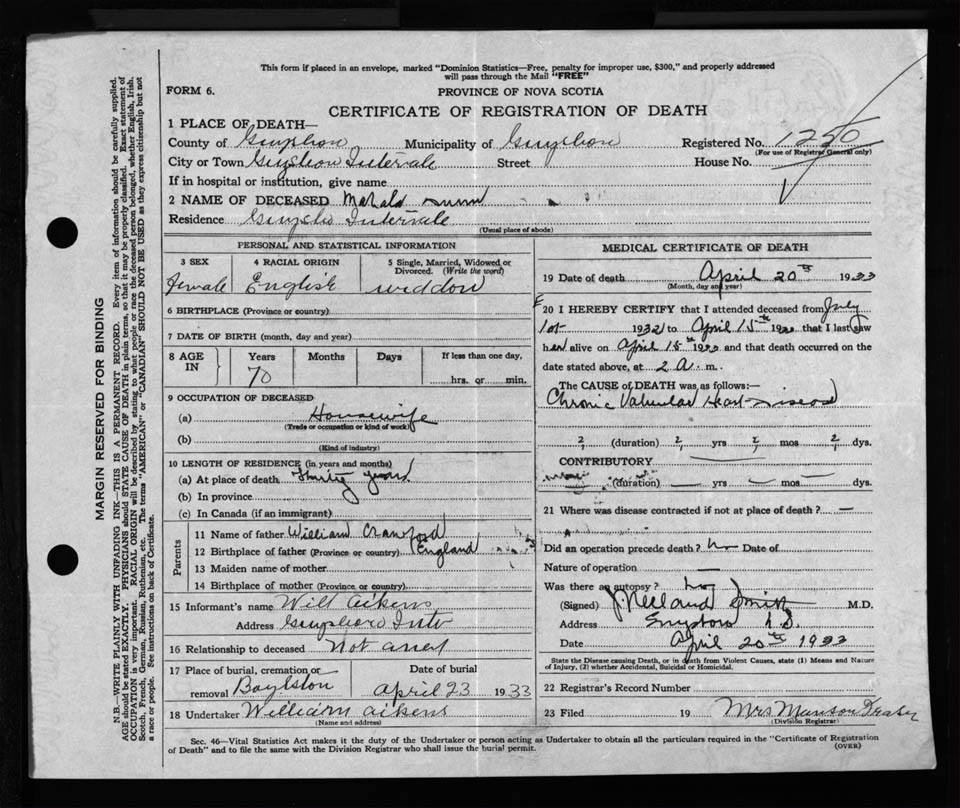 This form if placed in an envelope, marked "Dominion Statistics—Free, penalty for improper use, $300," and properly addressed
will pass through the Mail "FREE"
FORM 6.
PROVINCE OF NOVA SCOTIA
CERTIFICATE OF REGISTRATION OF DEATH
1 PLACE OF DEATH—
County of Guysboro Municipality of Guysboro Registered No. 1250
(For use of Registrar General only)
City or Town Guysboro Intervale Street House No.
If in hospital or institution, give name
2 NAME OF DECEASED Mahala
Residence Guysboro Intervale
(Usual place of abode)
PERSONAL AND STATISTICAL INFORMATION
3 SEX 4 RACIAL ORIGIN 5 Single, Married, Widowed or
Divorced. (Write the word)
Female English widdow
6 BIRTHPLACE (Province or country)
7 DATE OF BIRTH (month, day and year)
8 AGE IN Years Months Days If less than one day,
70 hrs. or min.
9 OCCUPATION OF DECEASED
(a) Housewife
(Trade or occupation or kind of work)
(b)
(Kind of industry)
10 LENGTH OF RESIDENCE (in years and months)
(a) At place of death Thirty years
(b) In province
(c) In Canada (if an immigrant)
Parents
11 Name of father William Crawford
12 Birthplace of father (Province or country) England
13 Maiden name of mother
14 Birthplace of mother (Province or country)
15 Informant's name Will Aikens
Address Guysboro Intv
16 Relationship to deceased Not any
17 Place of burial, cremation or Date of burial
removal Boylston April 23 1933
18 Undertaker William Aikens
(Name and address)
MEDICAL CERTIFICATE OF DEATH
19 Date of death April 20th 1933
(Month, day and year)
20 I HEREBY CERTIFY that I attended deceased from July
1st 1932 to April 15th 1933 that I last saw
her alive on April 15th 1933 and that death occurred on the
date stated above, at 2 A. m.
The CAUSE OF DEATH was as follows:—
Chronic Valvular Heart Disease
(duration) 2 yrs mos dys.
CONTRIBUTORY
(duration) yrs mos dys.
21 Where was disease contracted if not at place of death? —
Did an operation precede death? No Date of
Nature of operation —
Was there an autopsy? No
(Signed) Smith M.D.
Address Guysboro N.S.
Date April 20th 1933
State the Disease causing Death, or in death from Violent Causes, state (1) Means and Nature
of Injury, (2) whether Accidental, Suicidal or Homicidal.
22 Registrar's Record Number
23 Filed 19 Mrs Manson Fraser
(Division Registrar)
Sec. 46—Vital Statistics Act makes it the duty of the Undertaker or person acting as Undertaker to obtain all the particulars required in the "Certificate of Registration
of Death" and to file the same with the Division Registrar who shall issue the burial permit.
(OVER)
MARGIN RESERVED FOR BINDING
N.B.—WRITE PLAINLY WITH UNFADING INK—THIS IS A PERMANENT RECORD. Every item of information should be carefully supplied.
AGE should be stated EXACTLY. PHYSICIANS should STATE CAUSE OF DEATH in plain terms, so that it may be properly classified. Exact statement of
OCCUPATION is very important. RACIAL ORIGIN will be described by stating to what people or race the deceased person belonged, whether English, Irish,
Scotch, French, German, Russian, Ruthenian, etc. The terms "AMERICAN" or "CANADIAN" SHOULD NOT BE USED as they express citizenship but not
a race or people. See instructions on back of Certificate.